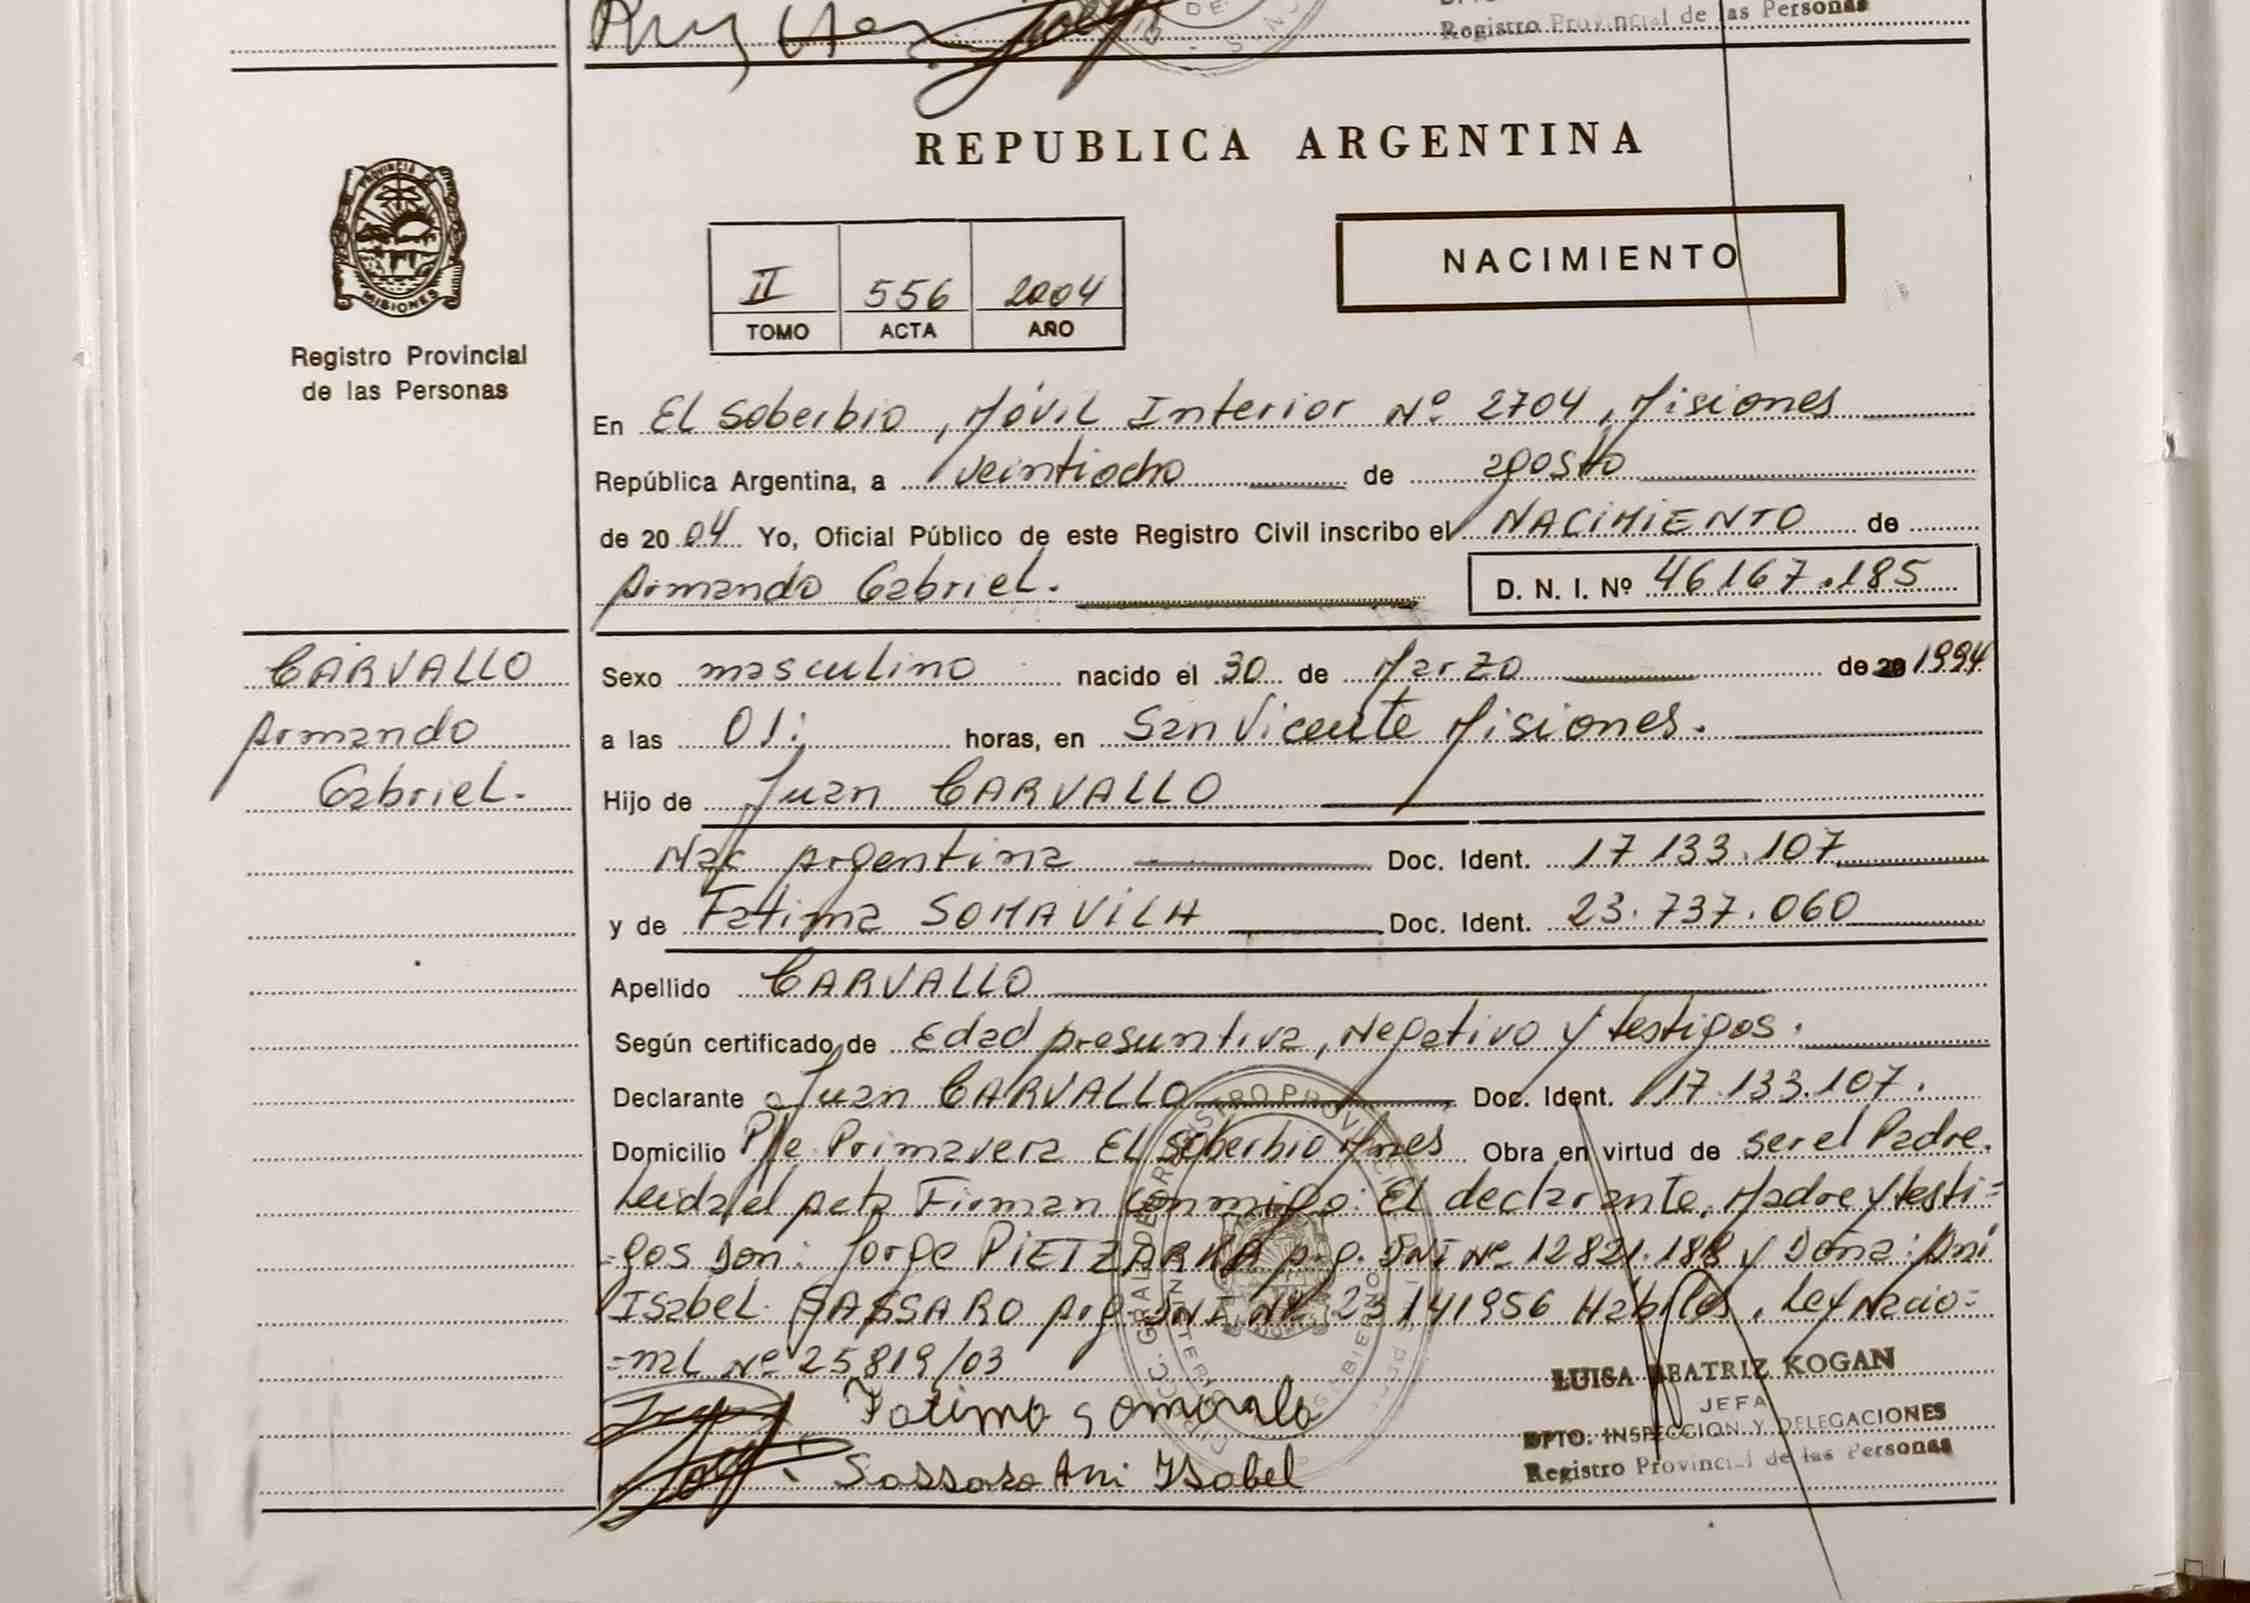 Registro Provincial de las Personas
REPUBLICA ARGENTINA
PROVINCIA DE
MISIONES
Registro Provincial
de las Personas
II 556 2004
TOMO ACTA AÑO
NACIMIENTO
En El Soberbio, Móvil Interior Nº 2704, Misiones
República Argentina, a veintiocho de agosto
de 2004 Yo, Oficial Público de este Registro Civil inscribo el NACIMIENTO de
Armando Gabriel. D. N. I. Nº 46167.185
CARVALLO
Armando
Gabriel.
Sexo masculino nacido el 30 de Marzo de 20 1994
a las 01: horas, en San Vicente Misiones.
Hijo de Juan CARVALLO
Nac Argentina Doc. Ident. 17 133.107
y de Fatima SOMAVILA Doc. Ident. 23.737.060
Apellido CARVALLO
Según certificado de Edad presuntiva, Negativo y testigos.
Declarante Juan CARVALLO Doc. Ident. 17.133.107.
Domicilio Pje Primavera El Soberbio Mnes Obra en virtud de ser el Padre.
Leida el acta Firman conmigo: El declarante, Madre y testi=
=gos Don: Jorge PIETZARKA arg. DNI Nº 12821.188 y Doña: Ani
Isabel SASSARO arg DNI Nº 23141956 Habiles, Ley Nacio=
=nal Nº 25819/03
Fatima Somavila
Sassaro Ani Isabel
LUISA BEATRIZ KOGAN
JEFA
DPTO. INSPECCION Y DELEGACIONES
Registro Provincial de las Personas